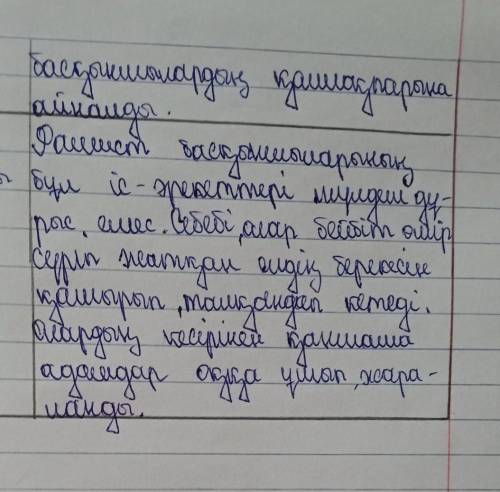 басқыншылардың қалшақтарына
айналды.
Фашист басқыншыларының
бұл іс-әрекеттері мүлдем дұ-
рыс емес. Себебі, олар бейбіт өмір
сүріп жатқан елдің берекесін
қашырып, талқандап кетеді.
Олардың кесірінен қаншама
адамдар оққа ұшып, жара-
ланды.